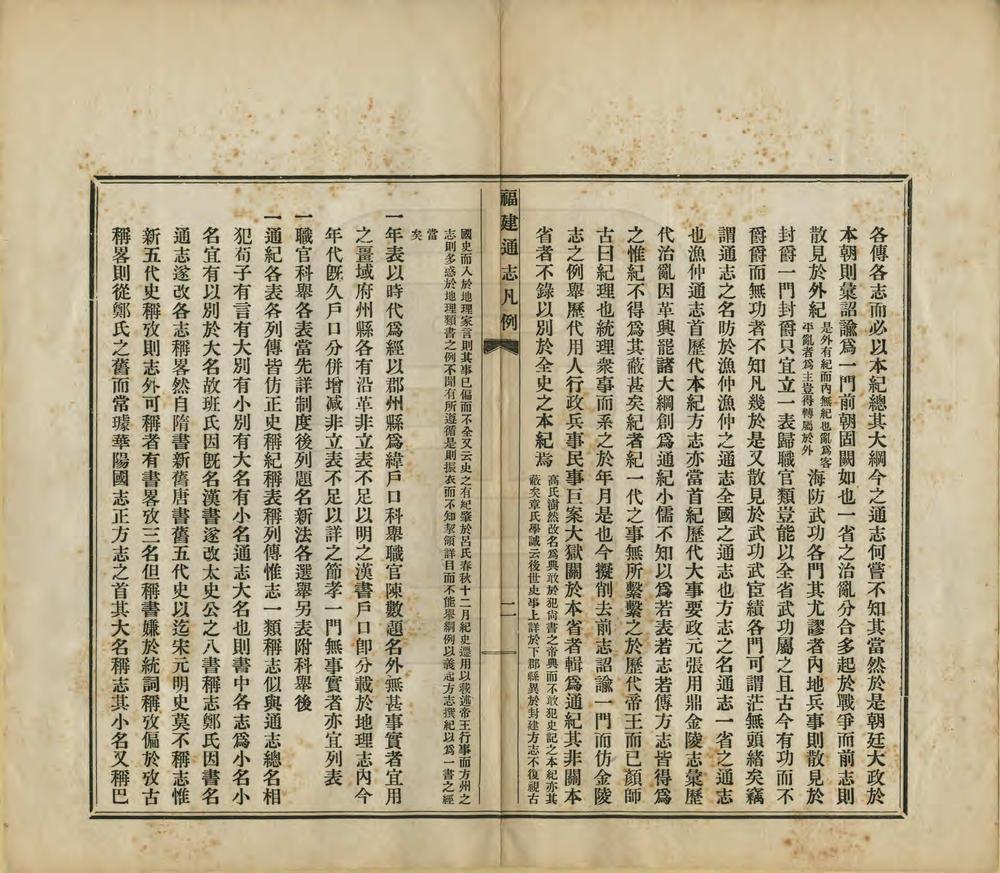 各傳各志而必以本紀總其大綱今之通志何嘗不知其當然於是朝廷大政於
本朝則彙詔諭爲一門前朝固闕如也一省之治亂分合多起於戰爭而前志則
散見於外紀
是外有紀而內無紀也亂爲客
平亂者爲主豈得轉屬於外
海防武功各門其尤謬者內地兵事則散見於
封爵一門封爵只宜立一表歸職官類豈能以全省武功屬之且古今有功而不
爵爵而無功者不知凡幾於是又散見於武功武宦績各門可謂茫無頭緒矣竊
謂通志之名昉於漁仲漁仲之通志全國之通志也方志之名通志一省之通志
也漁仲通志首歷代本紀方志亦當首紀歷代大事要政元張用鼎金陵志彙歷
代治亂因革興罷諸大綱創爲通紀小儒不知以爲若表若志若傳方志皆得爲
之惟紀不得爲其蔽甚矣紀者紀一代之事無所繫繫之於歷代帝王而已顏師
古曰紀理也統理衆事而系之於年月是也今擬削去前志詔諭一門而仿金陵
志之例舉歷代用人行政兵事民事巨案大獄關於本省者輯爲通紀其非關本
省者不錄以別於全史之本紀焉
高氏澍然改名爲典敢於犯尙書之帝典而不敢犯史記之本紀亦其
蔽矣章氏學誠云後世史事上詳於下郡縣異於封建方志不復視古
福建通志凡例
二
國史而入於地理家言則其事已偏而不全又云史之有紀肇於呂氏春秋十二月紀史遷用以載述帝王行事而方州之
志則多惑於地理類書之例不聞有所遵循是則振衣而不知挈領詳目而不能舉綱例以義起方志撰紀以爲一書之經
當
矣
一年表以時代爲經以郡州縣爲緯戶口科舉職官陳數題名外無甚事實者宜用
之疆域府州縣各有沿革非立表不足以明之漢書戶口卽分載於地理志內今
年代旣久戶口分併增減非立表不足以詳之節孝一門無事實者亦宜列表
一職官科舉各表當先詳制度後列題名新法各選舉另表附科舉後
一通紀各表各列傳皆仿正史稱紀稱表稱列傳惟志一類稱志似與通志總名相
犯荀子有言有大別有小別有大名有小名通志大名也則書中各志爲小名小
名宜有以別於大名故班氏因旣名漢書遂改太史公之八書稱志鄭氏因書名
通志遂改各志稱畧然自隋書新舊唐書舊五代史以迄宋元明史莫不稱志惟
新五代史稱攷則志外可稱者有書畧攷三名但稱書嫌於統詞稱攷偏於攷古
稱畧則從鄭氏之舊而常璩華陽國志正方志之首其大名稱志其小名又稱巴